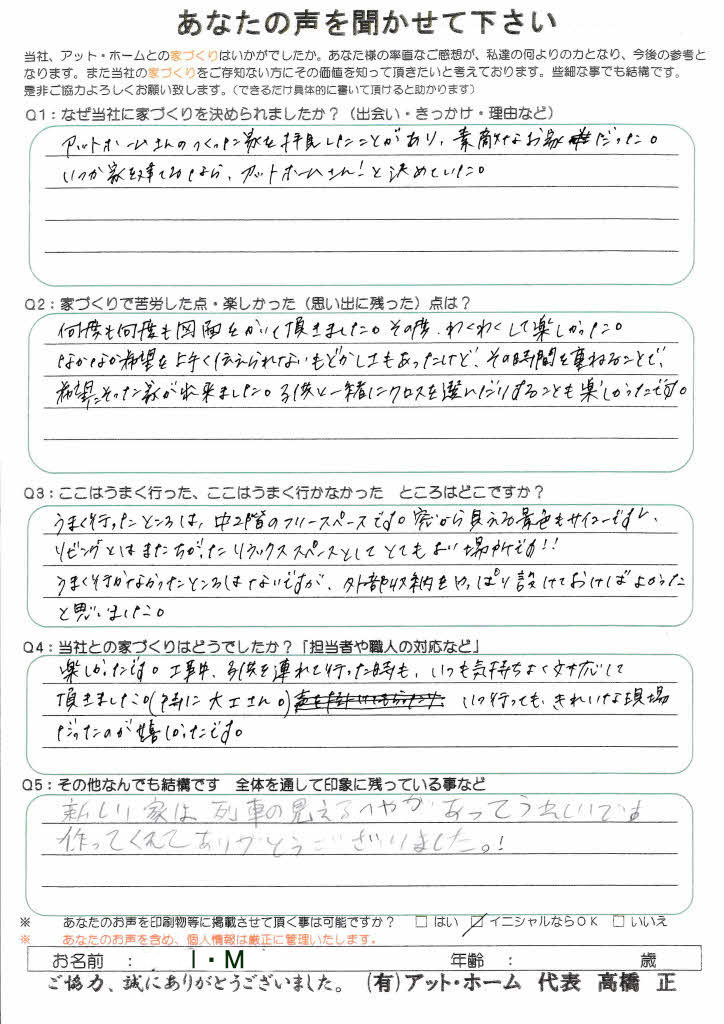 あなたの声を聞かせて下さい
当社、アット・ホームとの家づくりはいかがでしたか。あなた様の率直なご感想が、私達の何よりの力となり、今後の参考と
なります。また当社の家づくりをご存知ない方にその価値を知って頂きたいと考えております。些細な事でも結構です。
是非ご協力よろしくお願い致します。(できるだけ具体的に書いて頂けると助かります)
Q1：なぜ当社に家づくりを決められましたか？（出会い・きっかけ・理由など）
アットホームさんのつくった家を拝見したことがあり、素敵なお家だった。
いつか家を建てるなら、アットホームさん！と決めていた。
Q2：家づくりで苦労した点・楽しかった（思い出に残った）点は？
何度も何度も図面をかいて頂きました。その度、わくわくして楽しかった。
なかなか希望を上手く伝えられないもどかしさもあったけど、その時間を重ねることで、
希望にそった家が出来ました。子供と一緒にクロスを選んだりすることも楽しかったです。
Q3：ここはうまく行った、ここはうまく行かなかった　ところはどこですか？
うまく行ったところは、中2階のフリースペースです。窓から見える景色もサイコーですし、
リビングとはまたちがったリラックススペースとしてとてもよい場所です!!
うまく行かなかったところはないですが、外部収納をやっぱり設けておけばよかった
と思いました。
Q4：当社との家づくりはどうでしたか？「担当者や職人の対応など」
楽しかったです。工事中、子供を連れて行った時も、いつも気持ちよく対応して
頂きました。(特に大工さん。) いつ行っても、きれいな現場
だったのが嬉しかったです。
Q5：その他なんでも結構です　全体を通して印象に残っている事など
新しい家は、列車の見えるへやがあってうれしいです
作ってくれてありがとうございました。!
※　あなたのお声を印刷物等に掲載させて頂く事は可能ですか？　□ はい　☑ イニシャルならOK　□ いいえ
※　あなたのお声を含め、個人情報は厳正に管理いたします。
お名前　：　I・M　年齢　：　歳
ご協力、誠にありがとうございました。（有）アット・ホーム　代表　高橋　正